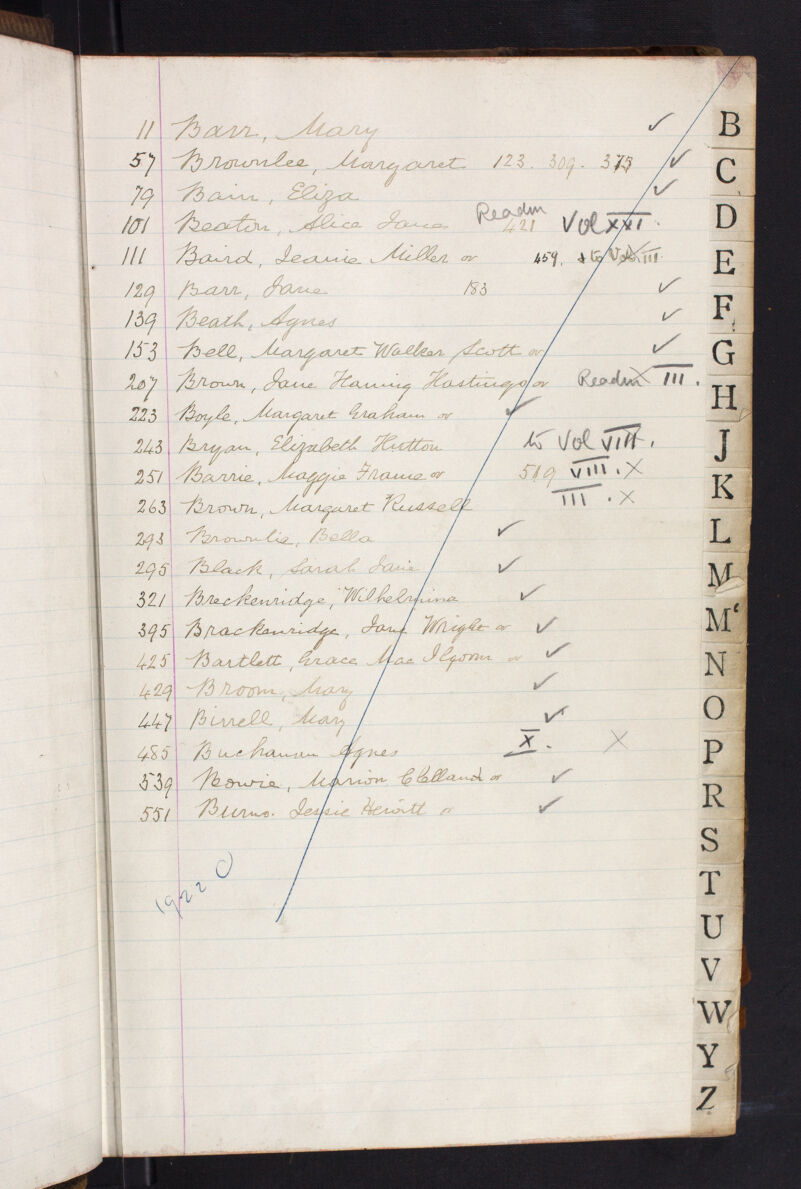 11 Barr, Mary ✓
57 Brownlee, Margaret 123. 309. 375 ✓
79 Bain, Eliza ✓
101 Beaton, Alice Jane Readm 421 Vol XXI.
111 Baird, Jeanie Miller or 459. & to Vol III
129 Barr, Jane 183 ✓
139 Beath, Agnes ✓
153 Bell, Margaret Walker Scott or ✓
207 Brown, Jane Haning Hastings or Readm X III.
223 Boyle, Margaret Graham or ✓
243 Bryan, Elizabeth Hutton to Vol VIII.
251 Barrie, Maggie Frame or 519 VIII. X
263 Brown, Margaret Russell III. X
293 Brownlie, Bella ✓
295 Black, Sarah Jane ✓
321 Breckenridge, Wilhelmina ✓
395 Brackenridge, Jane Wright or ✓
425 Bartlett, Grace Mac or ✓
429 Broom, Mary ✓
447 Birrell, Mary ✓
485 Buchanan Agnes X. X
539 Bowie, Marion or ✓
551 Burns. Jessie Hewitt or ✓
1922
B
C
D
E
F
G
H
J
K
L
M
Mc
N
O
P
R
S
T
U
V
W
Y
Z